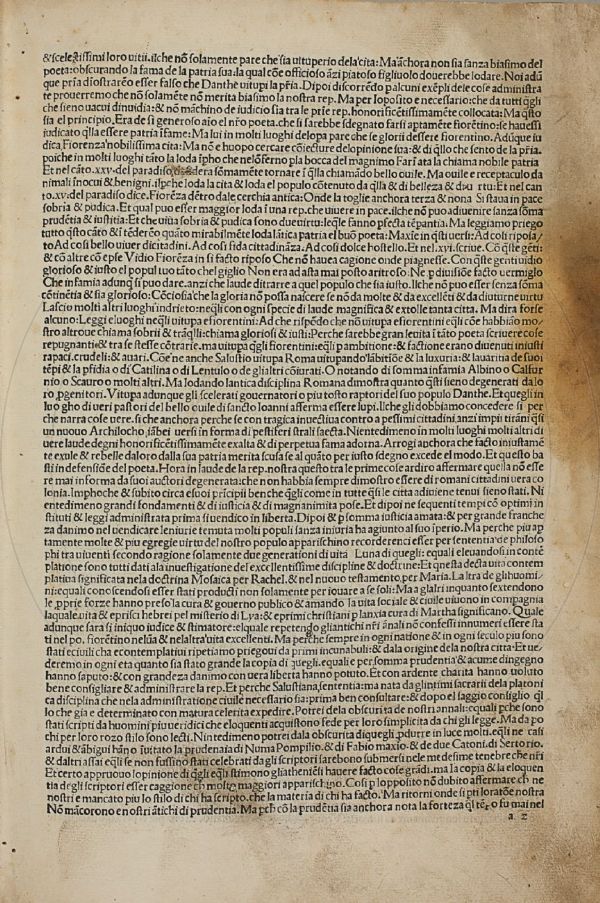 & scelestissimi loro uitii. ilche nõ solamente pare che sia uituperio dela cita: Ma ãchora non sia sanza biasimo del
poeta: obscurando la fama de la patria sua: la qual cõe officioso ãzi piatoso figliuolo douerebbe lodare. Noi adũ
que pria diostrarẽo esser falso che Danthe uitupi la pria. Dipoi discorrẽdo p alcuni exẽpli dele cose administra
te prouerremo che nõ solamente nõ merita biasimo la nostra rep. Ma per loposito e necessario: che da tutti q̃gli
che sieno uacui dinuidia: & nõ mãchino de iudicio sia tra le prie rep. honorificẽtissimamẽte collocata: Ma q̃sto
sia el principio. Era de si generoso aĩo el nr̃o poeta: che si sarebbe sdegnato farsi aptamẽte fiorẽtino: se hauessi
iudicato q̃lla essere patria ĩfame: Ma lui in molti luoghi de lopa pare che se glorii dessere fiorentino. Adũque su
dica Fiorenza nobilissima cita: Ma nõ e huopo cercare cõiecture delopinione sua: & di q̃llo che sento de la pria.
poiche in molti luoghi tãto la loda
Et nel cãto .xxv. del paradiso desidera sõmamẽte tornare ĩ q̃lla chiamãdo bello ouile. Ma ouile e receptaculo da
nimali inocui & benigni. ilpche loda la cita & loda el populo cõtenuto da q̃lla & di belleza & di uirtu: Et nel can
to .xv. del paradiso dice. Fiorẽza dẽtro dale cerchia antica: Onde la toglie anchora terza & nona Si staua in pace
sobria & pudica. Et qual puo esser maggior loda ĩ una rep. che uiuere in pace. ilche nõ puo aduienire sanza sõma
prudẽtia & iustitia: Et che uita sobria & pudica sono due uirtu: leq̃le fanno pfecta tẽpantia: Ma leggiamo priego
tutto q̃sto cãto & ĩtẽderẽo quãto mirabilmẽte loda lãtica patria el buõ poeta: Maxĩe in q̃sti uersi: Ad cosi riposa
to Ad cosi bello uiuer di citadini. Ad cosi fida cittadinãza. Ad cosi dolce hostello. Et nel .xvi. scriue. Cõ q̃ste gẽti:
& cõ altre cõ epse Vidio Fiorẽza in si facto riposo Che nõ hauea cagione onde piagnesse. Con q̃ste genti uidio
glorioso & iusto el popul tuo tãto chel giglio Non era ad asta mai posto aritroso: Ne p diuisiõe facto uermiglo
Che infamia adunq̃ si puo dare. anzi che laude ditrarre a quel populo che sia iusto. Il che nõ puo esser senza sõma
cõtinẽtia & sia glorioso: Cõciosia che la gloria nõ possa nascere se nõ da molte & da excellẽti & da diuturne uirtu
Lascio molti altri luoghi indrieto: neq̃li con ogni specie di laude magnifica & extolle tanta citta. Ma dira forse
alcuno. Leggi e luoghi neq̃li uitupa fiorentini: Ad che rispõdo che nõ uitupa fiorentini eq̃li cõe habbião mo
stro altroue chiama sobrii & trãq̃lli: chiama gloriosi & iusti: Per che sarebbe gran leuita ĩ tãto poeta scriuere cose
repugnanti: & tra se stesse cõtrarie. ma uitupa q̃gli fiorentini: eq̃li p ambitione: & factione erano diuenuti iniusti
rapaci. crudeli: & auari. Cõe ne anche Salustio uitupa Roma uitupando lãbitiõe & la luxuria: & lauaritia de suoi
tẽpi & la pfidia o di Catilina o di Lentulo o de gli altri cõiurati. O notando di somma infamia Albino o Calfur
nio o Scauro o molti altri. Ma lodando lantica disciplina Romana dimostra quanto q̃sti sieno degenerati da lo
ro p̃genitori. Vitupa adunque gli scelerati gouernatori o piu tosto raptori del suo populo Danthe. Et quegli in
luo gho di ueri pastori del bello ouile di sancto Ioanni afferma essere lupi. Ilche gli dobbiamo concedere si per
che narra cose uere. si che anchora perche se con tragica inuectiua contro a pessimi cittadini. anzi impii tirãni q̃si
un nuouo Archilocho, iãbei uersi in forma di pestiferi strali saecta. Nientedimeno in molti luoghi molti altri di
uere laude degni honorificẽtissimamẽte exalta & di perpetua fama adorna. Arrogi anchora che facto iniustamẽ
te exule & rebelle daloro dalla sua patria merita scusa se al quãto per iusto sdegno excede el modo. Et questo ba
sti in defensiõe del poeta. Hora in laude de la rep. nostra questo tra le prime cose ardiro affermare quella nõ esse
re mai in forma da suoi auctori degenerata: che non habbia sempre dimostro essere di romani cittadini uera co
lonia. Impho che & subito circa e suoi pricipii benche q̃gli come in tutte q̃si le citta adiuiene tenui sieno stati. Ni
entedimeno grandi fondamenti & di iustitia & di magnanimita pose. Et dipoi ne sequenti tempi cõ optimi in
stituti & leggi administrata prima si uendico in liberta. Dipoi & p somma iustitia amata: & per grande franche
za danimo nel uendicare leniurie temuta molti populi sanza iniuria ha agiunto al suo ĩperio. Ma perche piu ap
tamente molte & piu egregie uirtu del nostro populo apparischino recorderenci esser per sententia de philoso
phi tra uiuenti secondo ragione solamente due generationi di uita Luna di quegli: equali eleuandosi in contẽ
platione sono tutti dati ala inuestigatione del excellentissime discipline & doctrine: Et questa decta uita contem
platiua significata nela doctrina Mosaica per Rachel. & nel nuouo testamento. per Maria. Laltra de glihuomi
ni: equali conoscendosi esser stati producti non solamente per iouare a se soli: Ma a glaltri inquanto sextendono
le p̃prie forze hanno preso la cura & gouerno publico & amando la uita sociale & ciuile uiuono in compagnia
laquale uita & e prisci hebrei pel misterio di Lya: & e primi christiani p lanxia cura di Martha significano. Quale
adunque sara si iniquo iudice & stimatore: el quale repetendo gli antichi nr̃i ãnali nõ confessi innumeri essere sta
ti nel po. fiorentino nelũa & nelaltra uita excellenti. Ma perche sempre in ogni natione & in ogni seculo piu sono
stati e ciuili cha e contemplatiui ripetiamo priegoui da primi incunabuli: & dala origine dela nostra citta. Et ue
deremo in ogni eta quanto sia stato grande la copia di quegli. equali e per somma prudentia & acume dingegno
hanno saputo: & con grandeza danimo con uera liberta hanno potuto. Et con ardente charita hanno uoluto
bene consigliare & administrare la rep. Et perche Salustiana sententia: ma nata da glintimi sacrarii dela platoni
ca disciplina che nela administratione ciuile necessario sia: prima ben consultare: & dopo el saggio consiglio q̃l
lo che gia e determinato con matura celerita expedire. Potrei dela obscurita de nostri annali: equali pche sono
stati scripti da huomini piu ueridici che eloquenti acquistono sede per loro simplicita da chi gli legge. Ma da po
chi per loro rozo stilo sono lecti. Nientedimeno potrei dala obscurita di quegli p̃durre in luce molti. eq̃li ne casi
ardui & ãbigui hãno ĩuitato la prudenzia di Numa Pompilio. & di Fabio maxio. & de due Catoni. di Sertorio.
& daltri assai eq̃li se non fussino stati celebrati da gli scriptori sarebono submersi nele medesime tenebre che nr̃i
Et certo appruouo lopinione di q̃gli eq̃li stimono gli atheniẽsi hauere facto cose grãdi. ma la copia & la eloquen
tia degli scriptori esser caggione ch molto maggiori apparischino. Cosi p lopposito nõ dubito affermare ch ne
nostri e mancato piu lo stilo di chi ha scripto. che la materia di chi ha facto. Ma ritorni onde si pti loratõe nostra
Nõ mãcorono e nostri ãtichi di prudentia. Ma pch cõ la prudẽtia sia anchora nota la forteza q̃l tẽr̃o fu mai nel
a 2